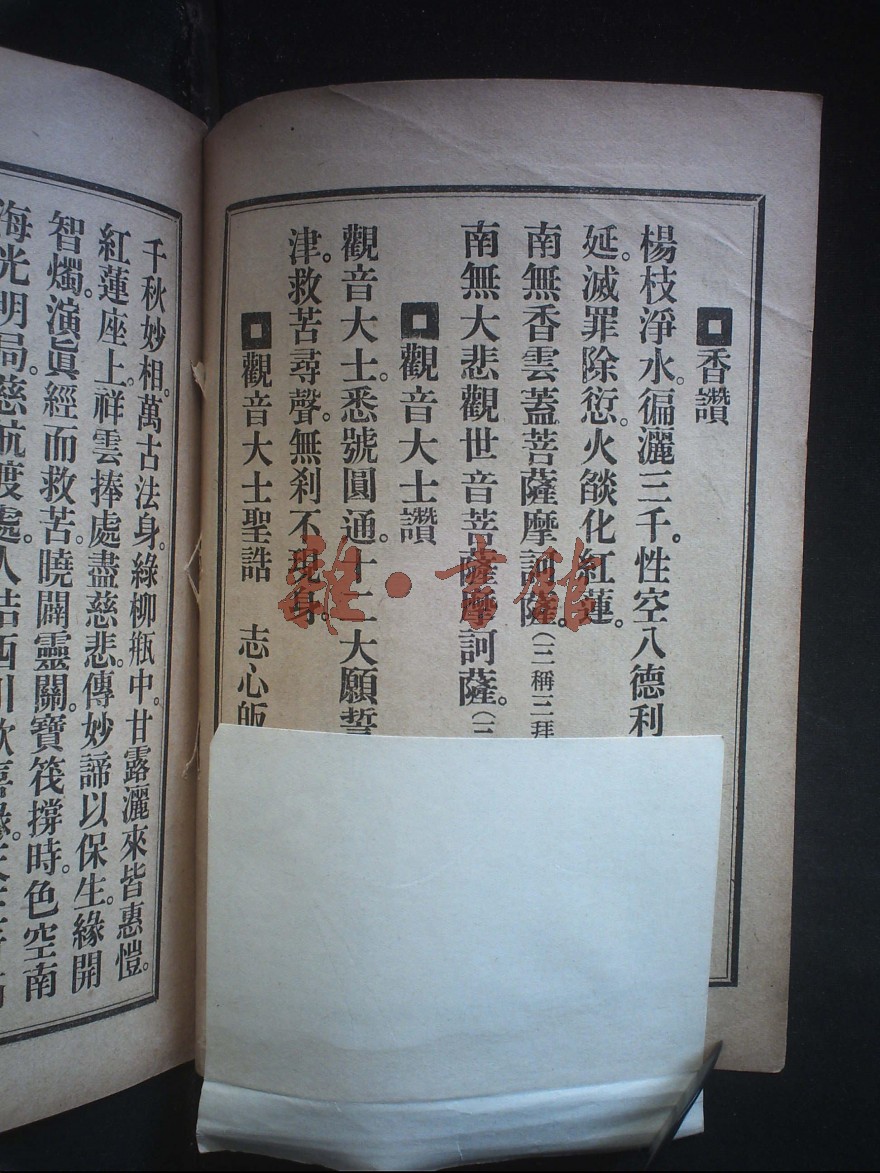 香讚
楊枝淨水。徧灑三千。性空八德利
延。滅罪除愆。火燄化紅蓮。
南無香雲蓋菩薩摩訶薩。(三稱三拜
南無大悲觀世音菩薩摩訶薩。(三
觀音大士讚
觀音大士。悉號圓通。十二大願誓
津。救苦尋聲。無刹不現身。
觀音大士聖誥 志心皈
千秋妙相。萬古法身。綠柳瓶中。甘露灑來皆惠愷。
紅蓮座上。祥雲捧處盡慈悲。傳妙諦以保生。緣開
智燭。演眞經而救苦。曉闢靈關。寶筏撐時。色空南
海光明局。慈航渡處。人結西川歡喜緣。
雜·書館